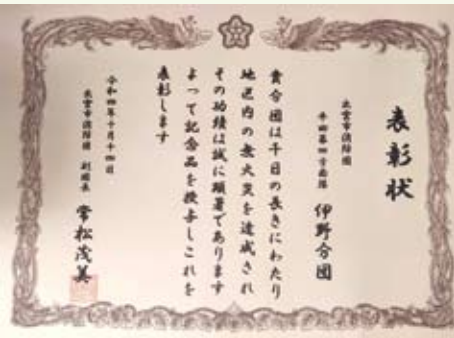 表彰状
出雲市消防団
平田第四方面隊
伊野分団
貴分団は千日の長きにわたり
地区内の無火災を達成され
その功績は誠に顕著であります
よって記念品を授与しこれを
表彰します
令和四年十月十四日
出雲市消防団 副団長 常松茂美